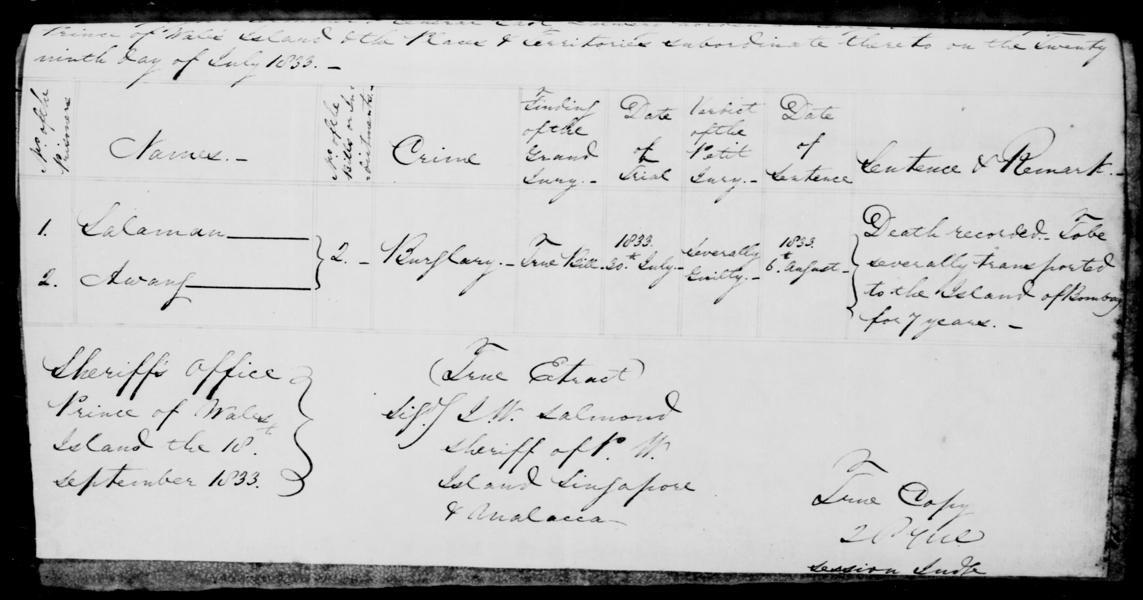 Prince of Wales Island & the Places & Territories subordinate thereto on the Twenty
ninth day of July 1833. -
No. of the Prisoners
Names. -
No. of the Bills or Indictments.
Crime
Finding of the Grand Jury. -
Date of Trial
Verdict of the Petit Jury. -
Date of Sentence
Sentence & Remark. -
1. Salaman
2. Awang
2. -
Burglary. -
True Bill.
1833.
30th July -
Severally
Guilty. -
1833.
6th August -
Death recorded - To be
severally transported
to the Island of Bombay
for 7 years. -
Sheriff's Office
Prince of Wales
Island the 18th
September 1833.
(True Extract)
Sigd) J. W. Salmond
Sheriff of P. W.
Island Singapore
& Malacca
True Copy
Session Judge